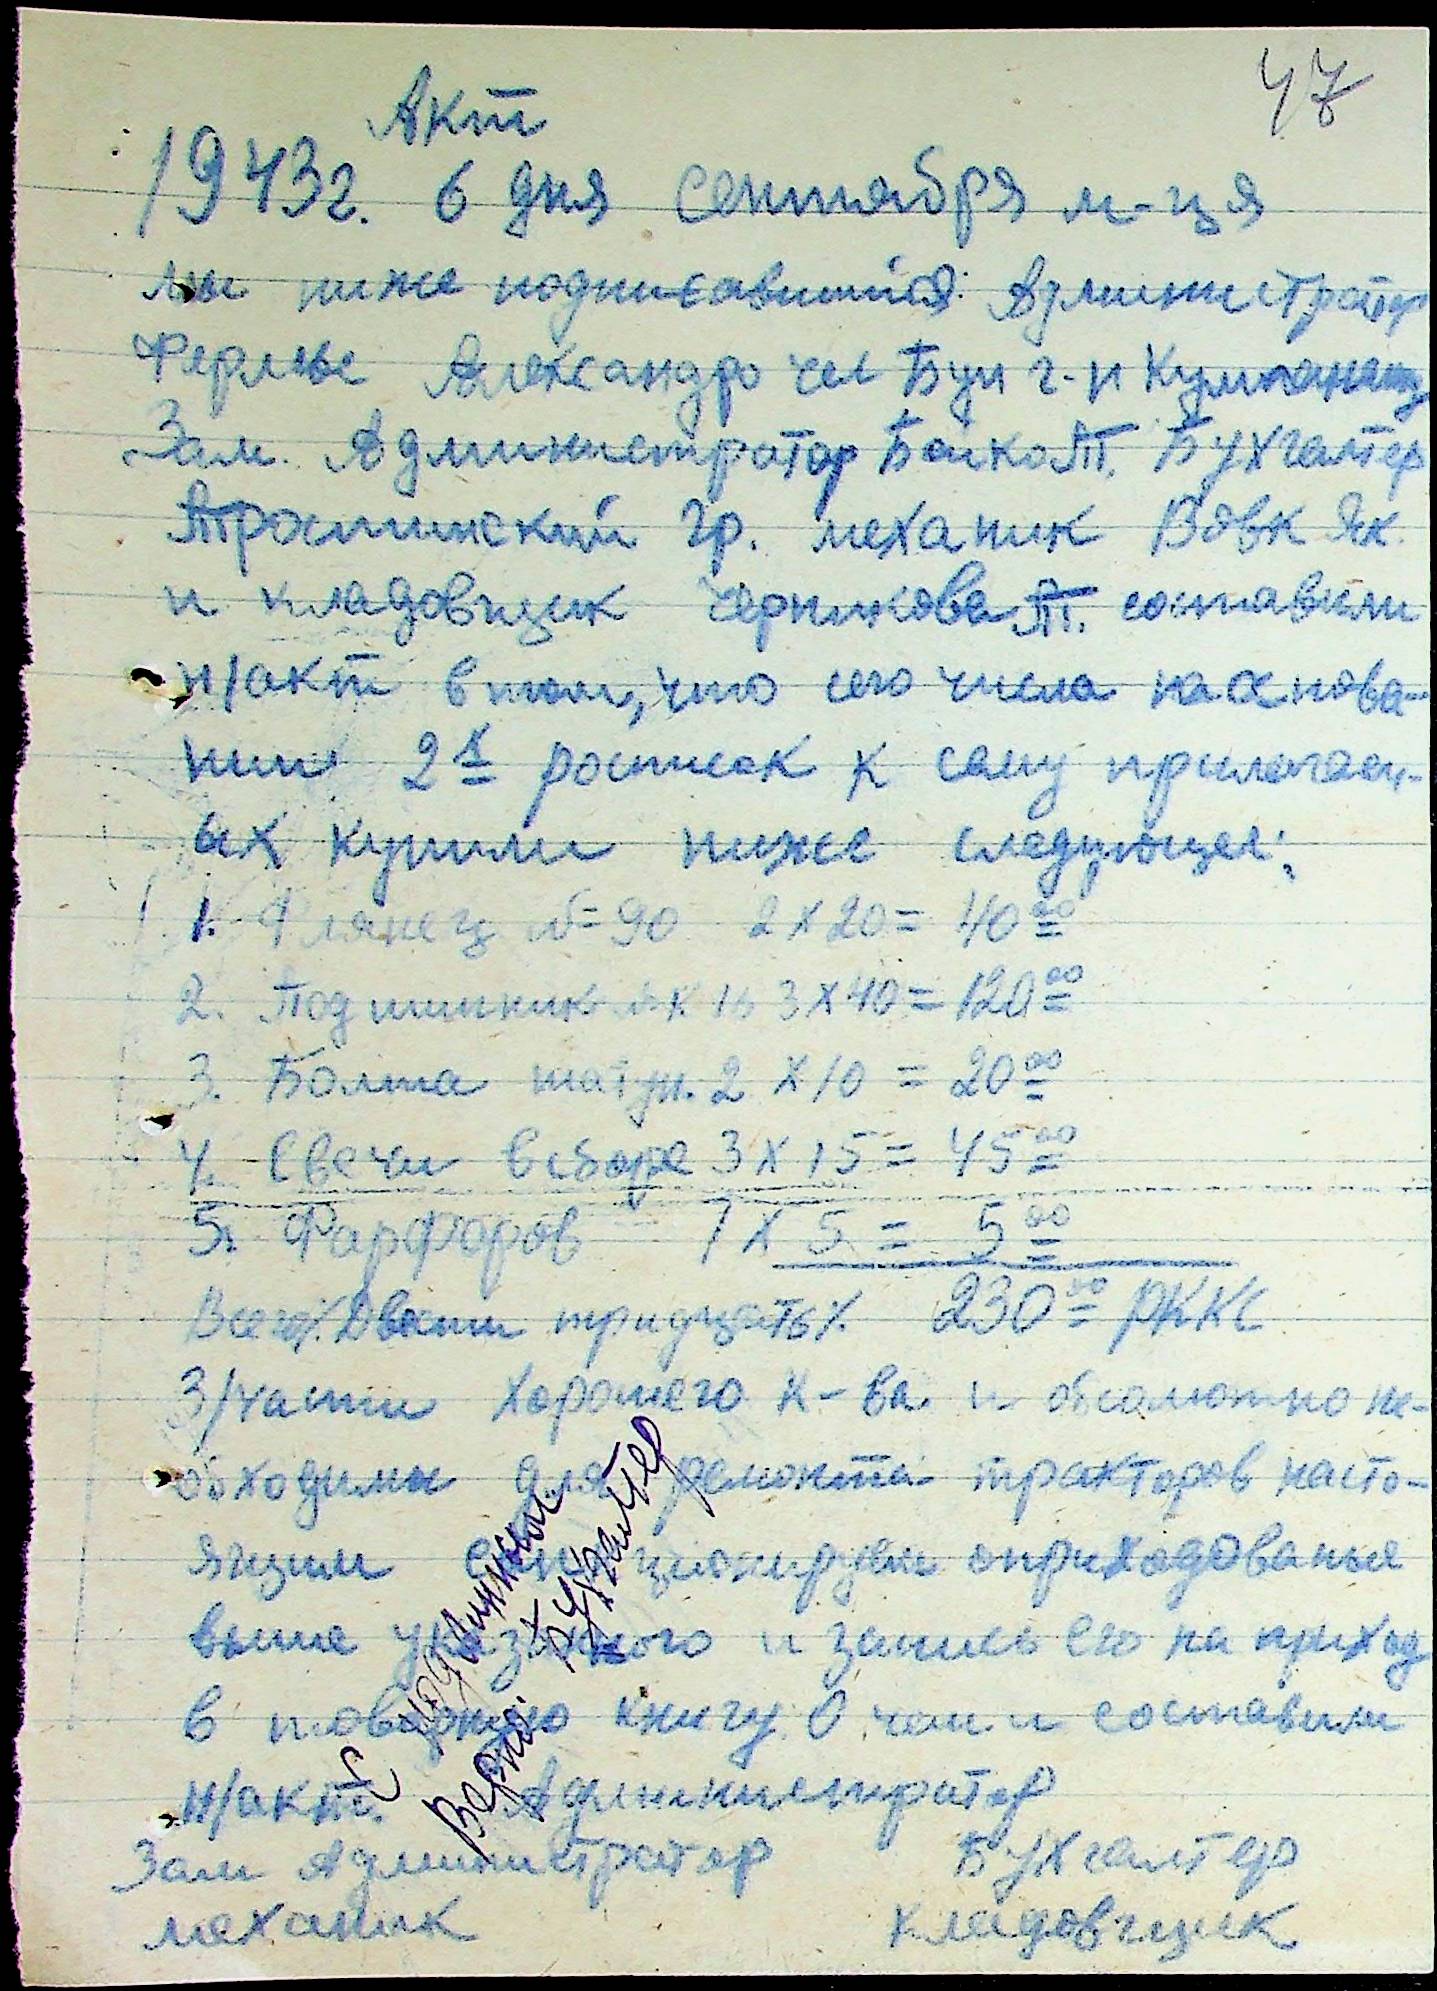 47
Акт
1943г. 6 дня сентября м-ця
мы ниже подписавшийся: Администратор
Фермы Александро чел Бун г-н Кумпанец
Зам. Администратор Боико Т. Бухгалтер
Тросшинский гр. механик Вовк Як.
и кладовщик Черникова Т. составили
н/акт в том, что сего числа на основа-
нии 2х росписок к сему прилогаем-
ых купили ниже следующее:
1. Флянец d=90 2 х 20 = 40 00
2. Подшипник 3 х 40 = 120 00
3. Болта шатун. 2 х 10 = 20 00
4. Свечи в сборе 3 х 15 = 45 00
5. Фарфоров 1 х 5 = 5 00
Всего% Двести тридцать% 230 00 РККС
З/части хорошего к-ва и обсолютно не-
обходимы для ремонта тракторов насто-
ящим оприходованье
выше указанного и запись его на приход
в товарную книгу. О чем и составили
н/акт. Администратор
Зам Администратор Бухгалтер
механик кладовщик
С подлинным
верно: Бухгалтер